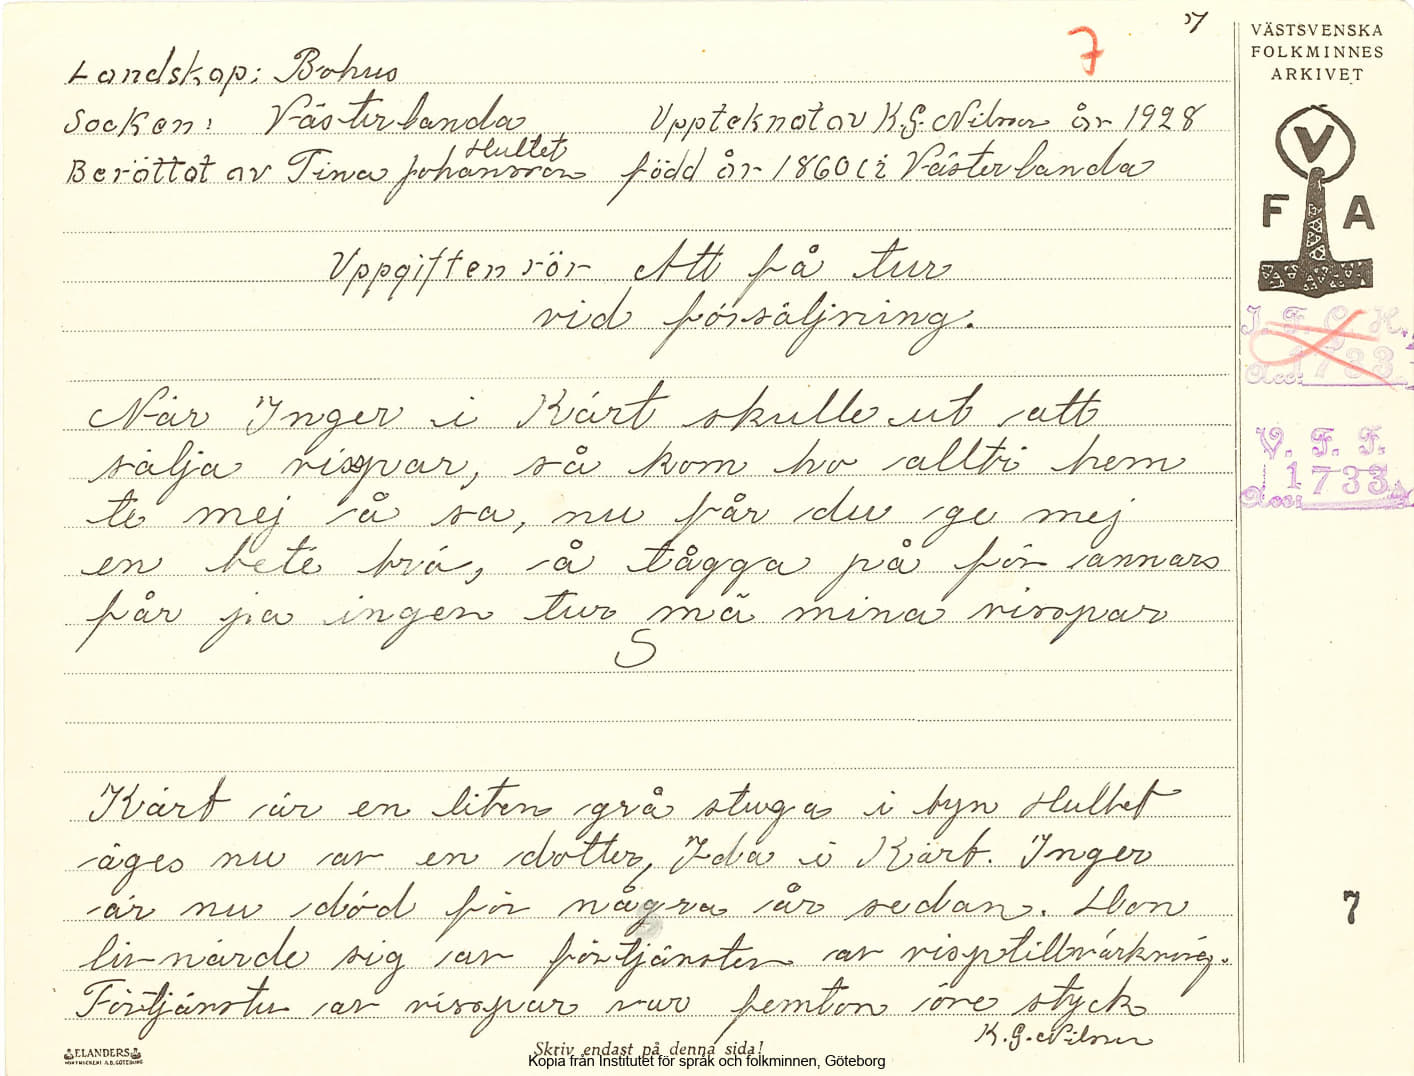 7
7
VÄSTSVENSKA
FOLKMINNES
ARKIVET
V
F A
Landskap: Bohus
Socken: Västerlanda Upptecknat av K.G. Nilsson år 1928
Hultet
Berättat av Tina Johansson född år 1860 i Västerlanda
Uppgiften rör Att få tur
vid försäljning.
När Inger i Kärt skulle ut att
sälja vispar, så kom ho allti hem
te mej å sa, nu får du ge mej
en bete brö, å tågga på för annars
får ja ingen tur mä mina visspar
S
Kärt är en liten grå stuga i byn Hultet
äges nu av en dotter, Ida i Kärt. Inger
är nu död för några år sedan. Hon
livnärde sig av förtjänsten av visptillvärkning.
Förtjänsten av visspar var femton öre styck
K.G. Nilsson
I. F. G. H.
1733
Acc.
V. F. F.
1733
Acc.
7
ELANDERS
Skriv endast på denna sida!
Kopia från Institutet för språk och folkminnen, Göteborg